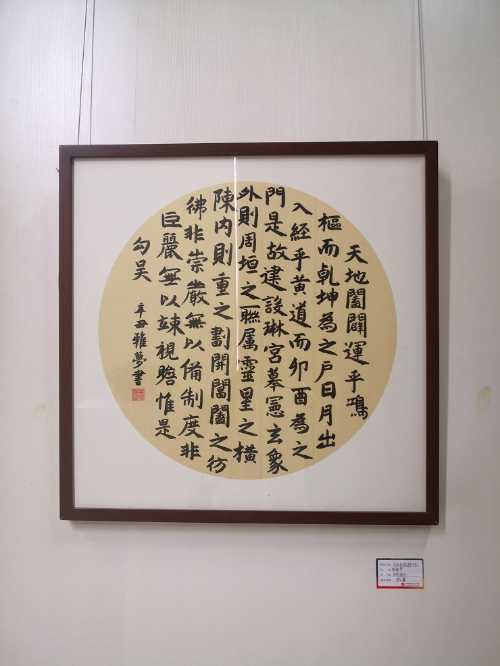 天地闔闢運乎鴻
樞而乾坤為之户日月出
入經乎黄道而卯酉為之
門是故建設琳宮摹憲玄象
外則周垣之聯属靈星之橫
陳内則重之劃開閶闔之彷
彿非崇嚴無以備制度非
巨麗無以竦視瞻惟是
勾吴
辛丑雅夢書